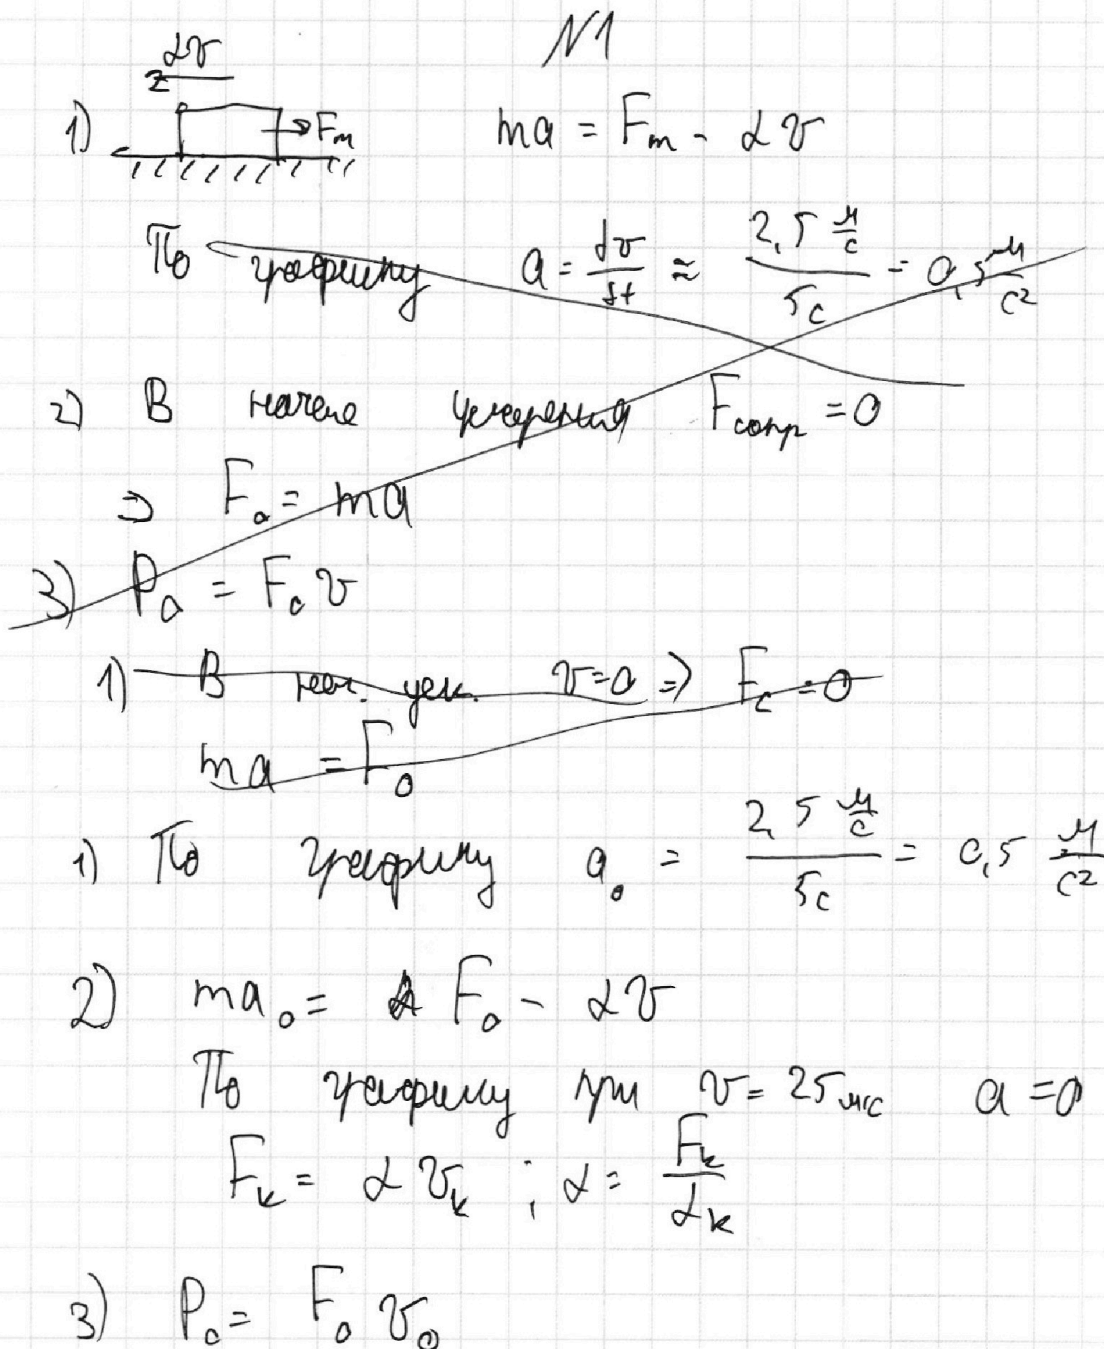 N1
αv
1) Fm ma = Fm - αv
По графику a = dv/dt ≈ 2,5 м/с / 5с = 0,5 м/с²
2) В начале ускорения Fсопр = 0
⇒ F₀ = ma
3) P₀ = F₀ v
1) В нач. уск. v=0 ⇒ Fc = 0
ma = F₀
1) По графику a₀ = 2,5 м/с / 5с = 0,5 м/с²
2) ma₀ = F₀ - αv
По графику при v = 25 м/с a = 0
Fk = αvk ; α = Fk/αk
3) P₀ = F₀ v₀